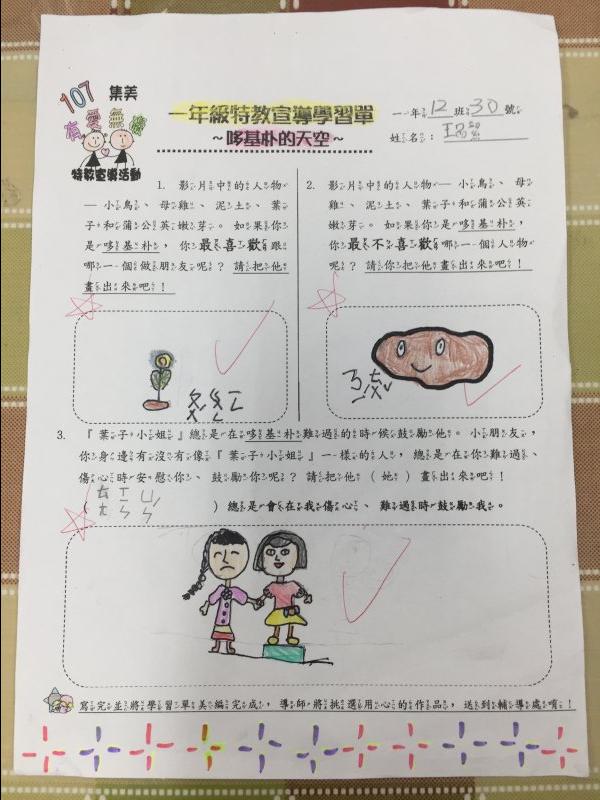 107 集美
有愛無礙
特教宣導活動
一年級特教宣導學習單
~哆基朴的天空~
一年12班30號
姓名:
1. 影片中的人物
—小鳥、母雞、泥土、葉
子和蒲公英嫩芽。如果你
是哆基朴,你最喜歡跟
哪一個做朋友呢?請把他
畫出來吧!
2. 影片中的人物—小鳥、母
雞、泥土、葉子和蒲公英
嫩芽。如果你是哆基朴,
你最不喜歡哪一個人物
呢?請你把他畫出來吧!
3. 『葉子小姐』總是在哆基朴難過的時候鼓勵他。小朋友,
你身邊有沒有像『葉子小姐』一樣的人,總是在你難過、
傷心時安慰你、鼓勵你呢?請把他(她)畫出來吧!
( )總是會在我傷心、難過時鼓勵我。
寫完並將學習單美編完成,導師將挑選用心的作品,送到輔導處唷!